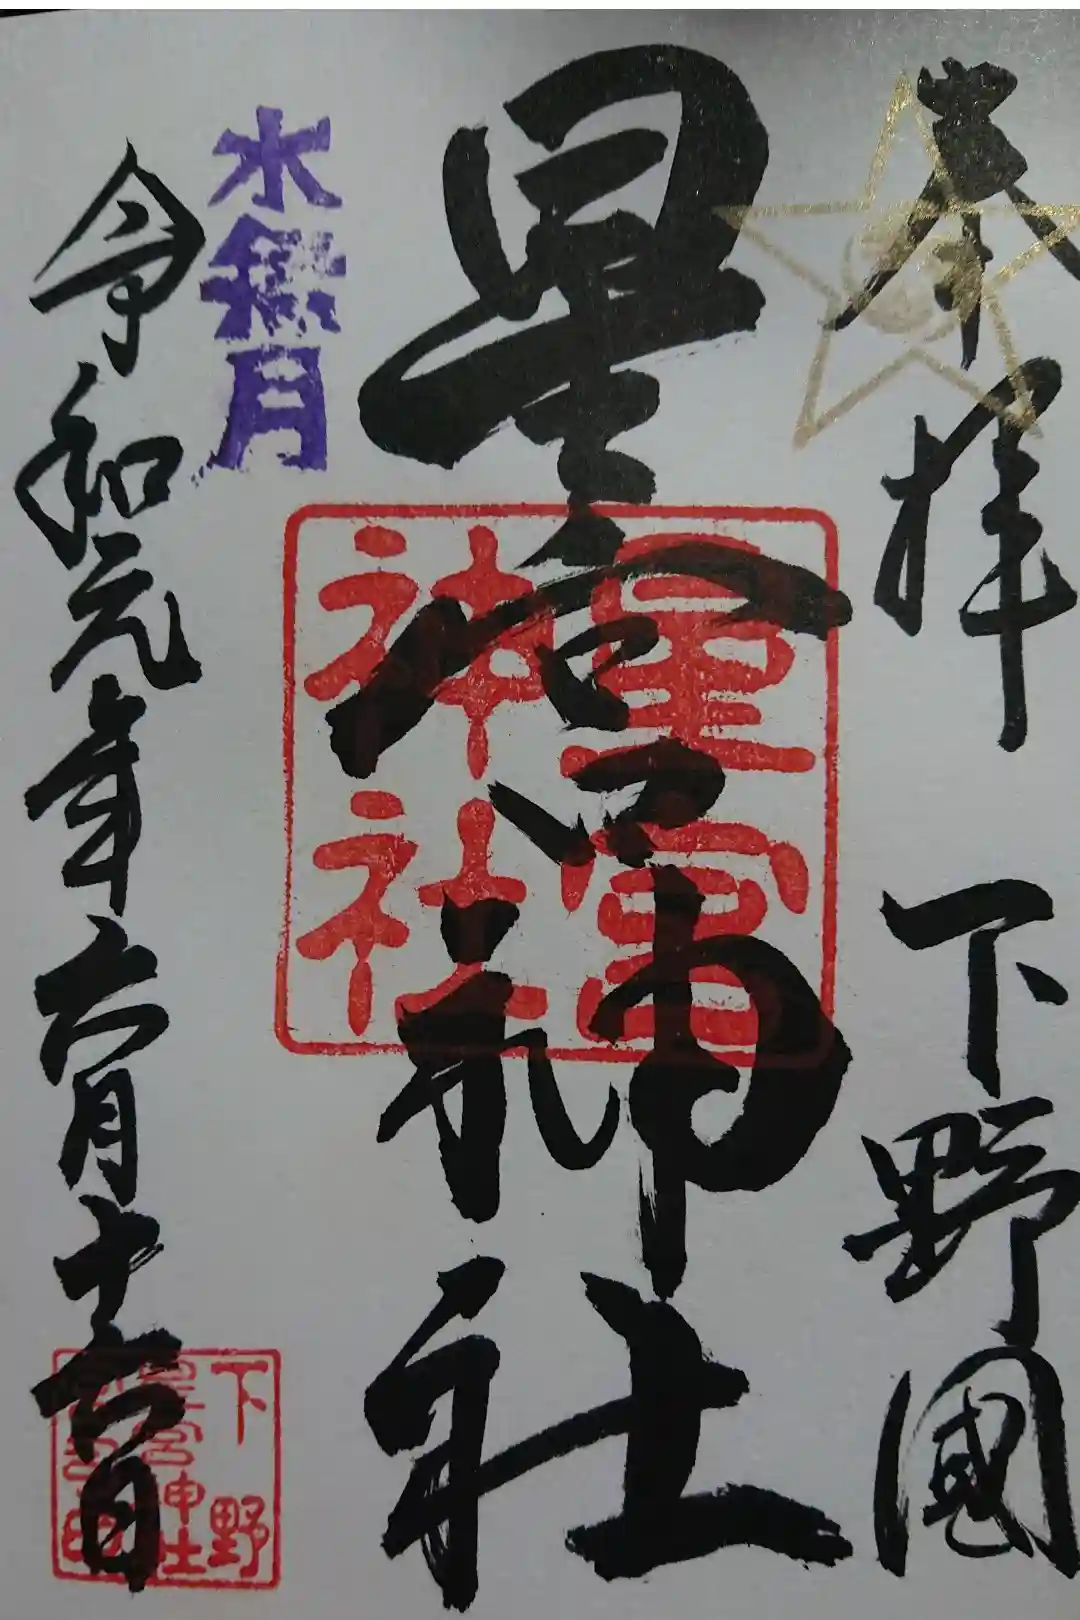 奉拝
下野國
星宮神社
星宮
神社
水無月
令和元年六月十六日
下野
星宮神社